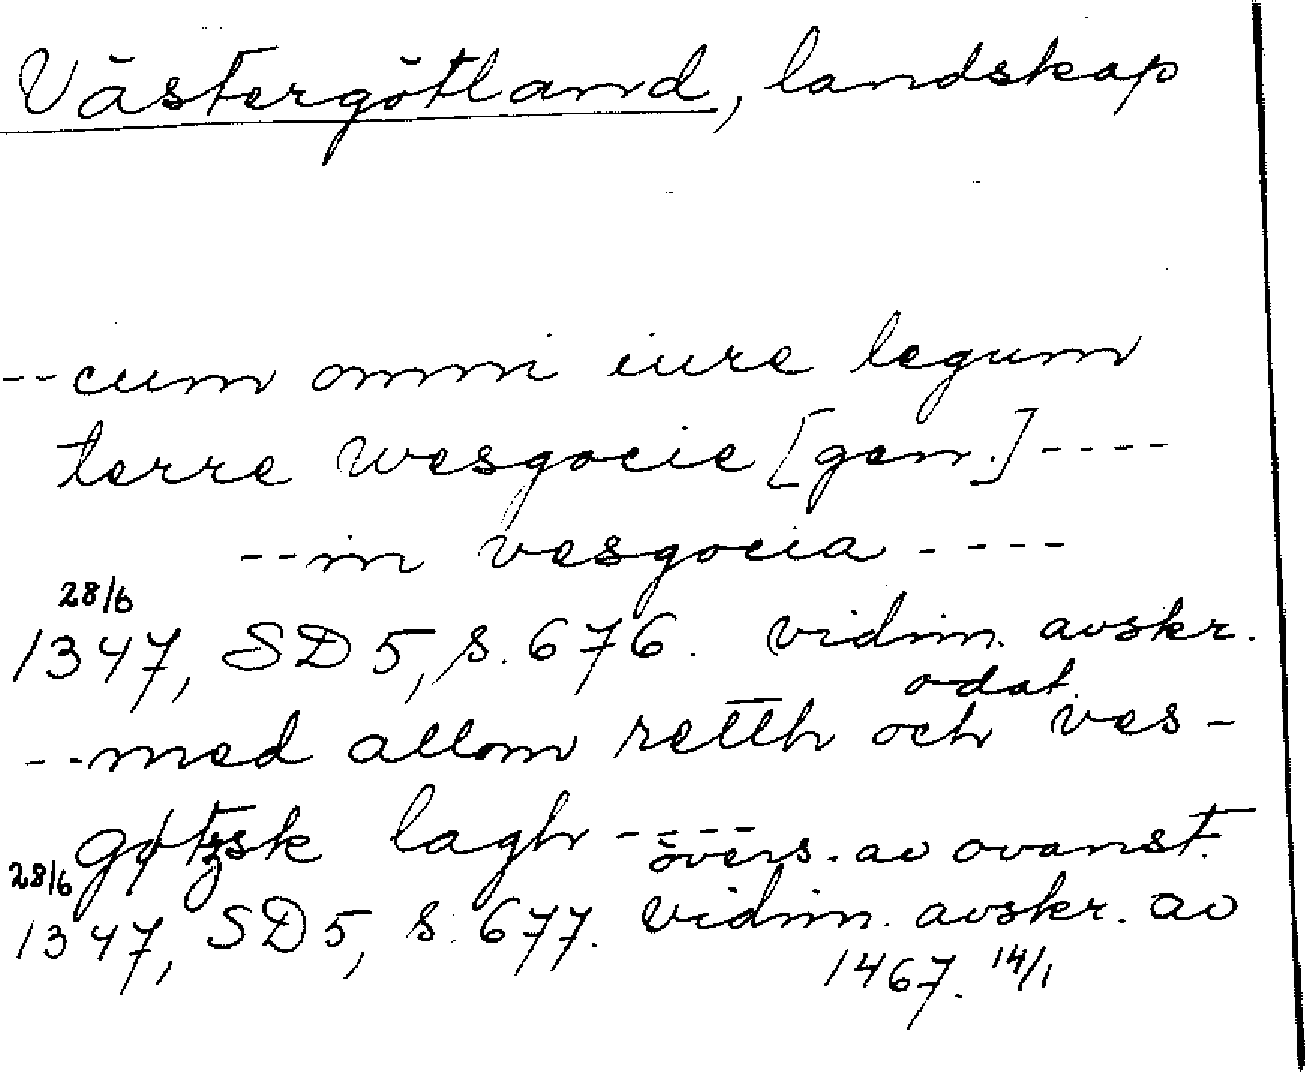 Västergötland, landskap
--cum omni iure legum
terre wesgocie [gen.]----
--in vesgocia ----
28/6
1347, SD 5, s. 676. vidim. avskr.
odat.
--med allom retth och ves-
gøtzsk lagh -----
övers. av ovanst.
28/6
1347, SD 5, s. 677. vidim. avskr. av
1467. 14/1